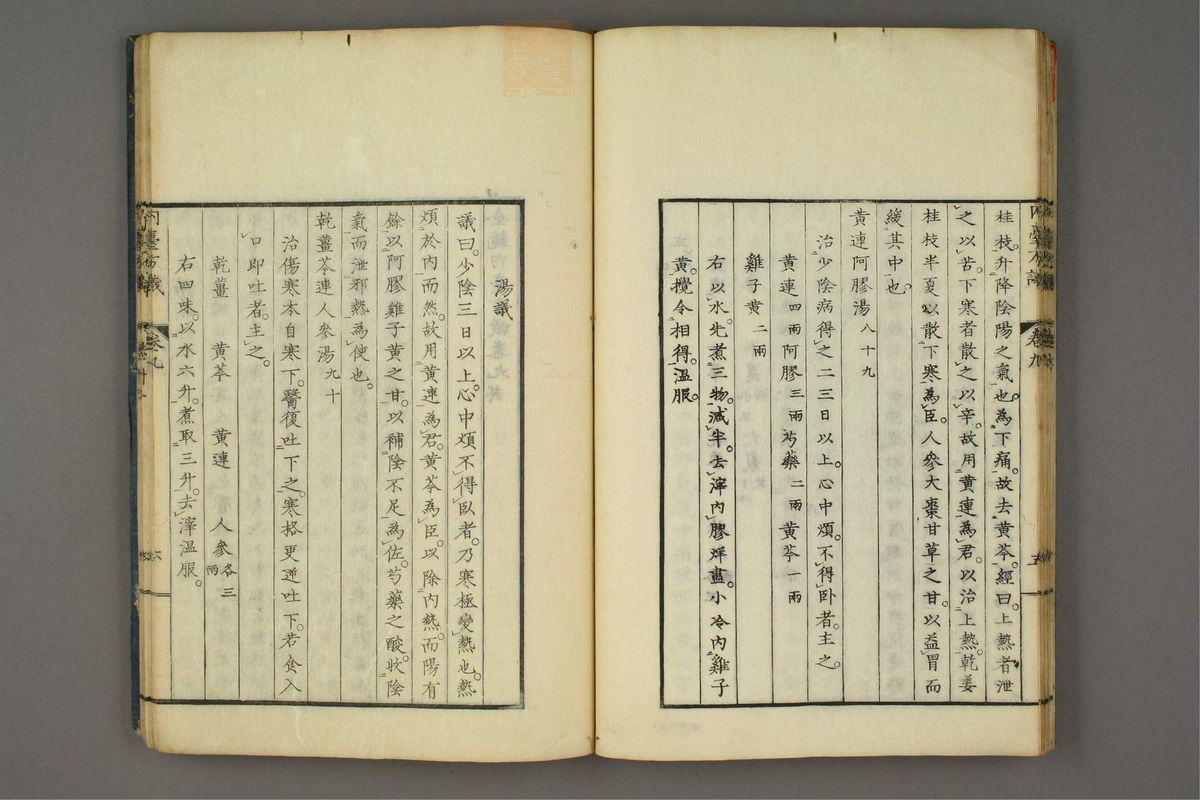 桂枝升降陰陽之氣也為下痛故去黃芩經曰上熱者泄
之以苦下寒者散之以辛故用黃連為君以治上熱乾姜
桂枝半夏以散下寒為臣人參大棗甘草之甘以益胃而
緩其中也
黃連阿膠湯八十九
治少陰病得之二三日以上心中煩不得卧者主之
黃連四兩阿膠三兩芍藥二兩黃芩一兩
雞子黃二兩
右以水先煮三物減半去滓內膠烊盡小冷內雞子
黃攪令相得溫服
內臺方議 卷九 五
湯議
議曰少陰三日以上心中煩不得臥者乃寒極變熱也熱
煩於內而然故用黃連為君黃芩為臣以除內熱而陽有
餘以阿膠雞子黃之甘以補陰不足為佐芍藥之酸收陰
氣而泄邪熱為使也
乾薑芩連人參湯九十
治傷寒本自寒下醫復吐下之寒格更逆吐下若食入
口即吐者主之
乾薑 黃芩 黃連 人參各三兩
右四味以水六升煮取三升去滓溫服
內臺方議 卷九 六